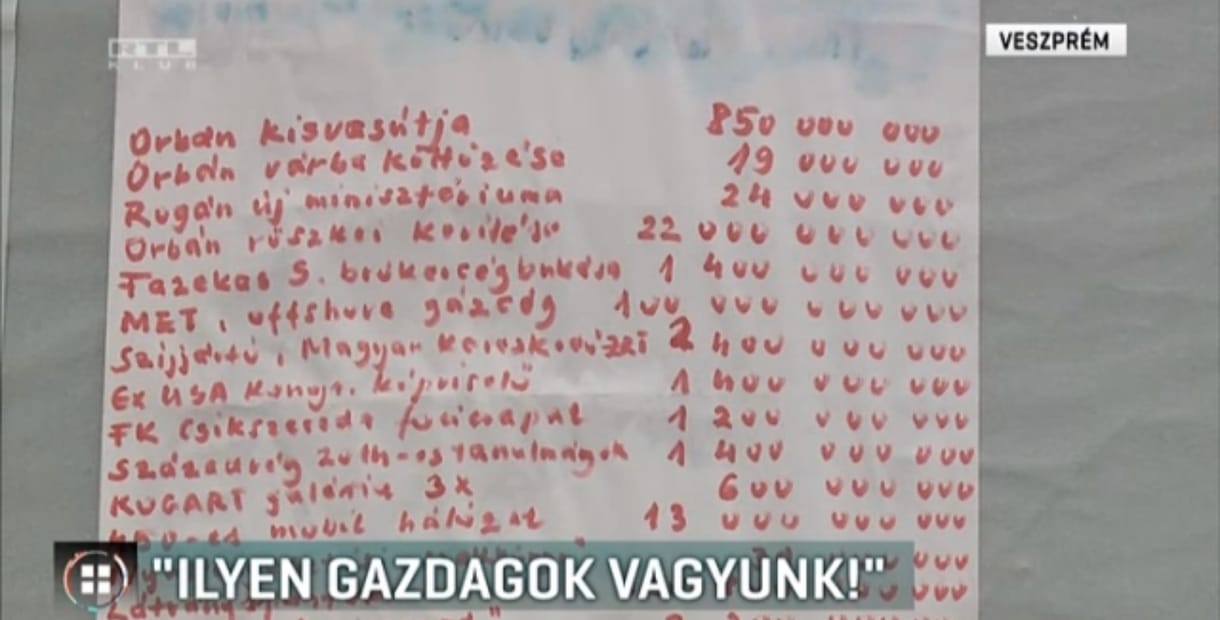 RTL
KLUB
VESZPRÉM
Orbán kisvasútja 850 000 000
Orbán várba költözése 19 000 000
Rogán új minisztériuma 24 000 000
Orbán röszkei kerítése 22 000 000 000
Fazekas S. brókercég bukása 1 400 000 000
MET, offshore gázcég 100 000 000 000
Szijjártó, Magyar Keresk 2 400 000 000
Ex USA kongr. képviselő 1 400 000 000
FK Csíkszereda focicsapat 1 200 000 000
Századvég 1 400 000 000
KOGART galéria 3x 600 000 000
mobil hálózat 13 000 000 000
"ILYEN GAZDAGOK VAGYUNK!"